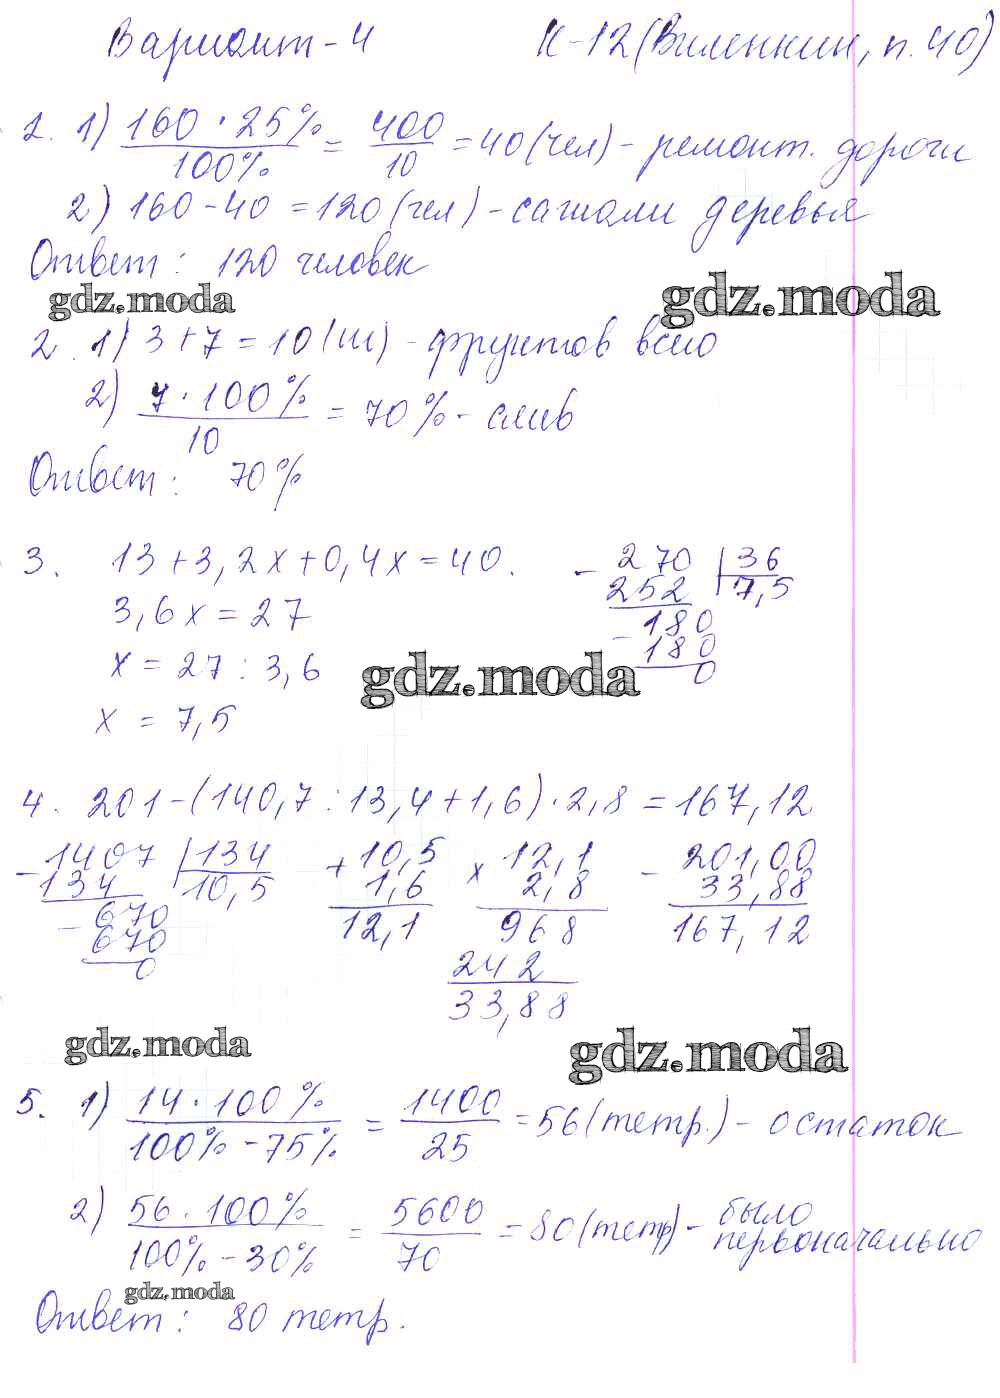 Вариант-4 К-12(Виленкин, п.40)
1. 1) 160 · 25% / 100% = 400 / 10 = 40 (чел) - ремонт. дороги
2) 160 - 40 = 120 (чел) - сажали деревья
Ответ: 120 человек
gdz.moda gdz.moda
2. 1) 3 + 7 = 10 (ш) - фруктов всего
2) 7 · 100% / 10 = 70% - слив
Ответ: 70%
3. 13 + 3,2x + 0,4x = 40.
3,6x = 27
x = 27 : 3,6
x = 7,5
- 270 | 36
252 7,5
- 180
180
0
gdz.moda
4. 201 - (140,7 : 13,4 + 1,6) · 2,8 = 167,12
- 1407 | 134
134 10,5
- 670
670
0
+ 10,5
1,6
12,1
× 12,1
2,8
968
242
33,88
- 201,00
33,88
167,12
gdz.moda gdz.moda
5. 1) 14 · 100% / 100% - 75% = 1400 / 25 = 56 (тетр.) - остаток
2) 56 · 100% / 100% - 30% = 5600 / 70 = 80 (тетр) - было первоначально
gdz.moda
Ответ: 80 тетр.